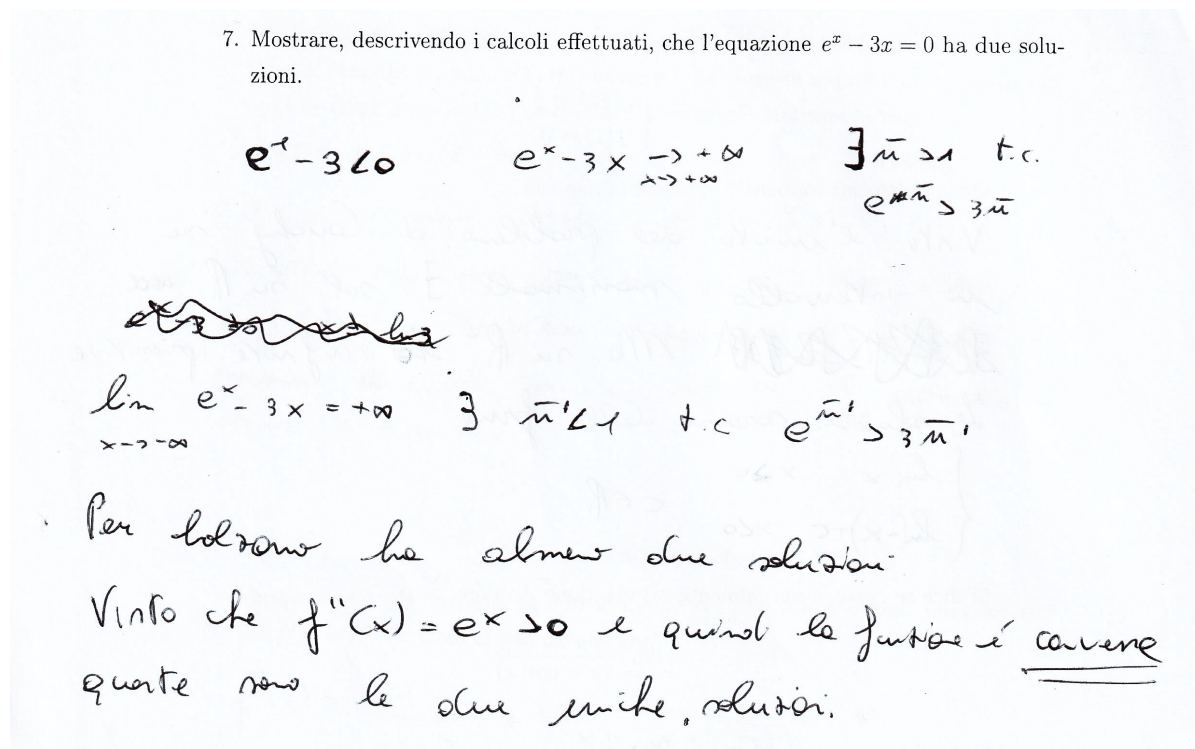 7. Mostrare, descrivendo i calcoli effettuati, che l'equazione eˣ − 3x = 0 ha due solu-
zioni.
e¹ - 3 < 0   eˣ - 3x → +∞   ∃ n̄ > 1 t.c.
x → +∞   e^n̄ > 3n̄
lim eˣ - 3x = +∞   ∃ n̄' < 1 t.c e^n̄' > 3n̄'
x → -∞
Per bolzano ha almeno due soluzioni
Visto che f''(x) = eˣ > 0 e quindi la funzione é convessa
queste sono le due uniche soluzioni.